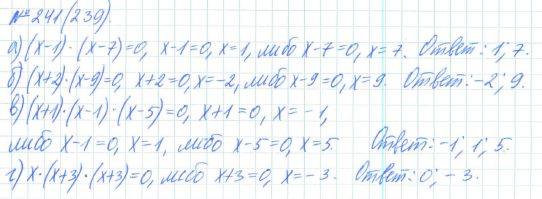 № 241(239).
а) (x-1)·(x-7)=0, x-1=0, x=1, либо x-7=0, x=7. Ответ: 1; 7.
б) (x+2)·(x-9)=0, x+2=0, x=-2, либо x-9=0, x=9. Ответ: -2; 9.
в) (x+1)·(x-1)·(x-5)=0, x+1=0, x=-1,
либо x-1=0, x=1, либо x-5=0, x=5. Ответ: -1; 1; 5.
г) x·(x+3)·(x+3)=0, либо x+3=0, x=-3. Ответ: 0; -3.